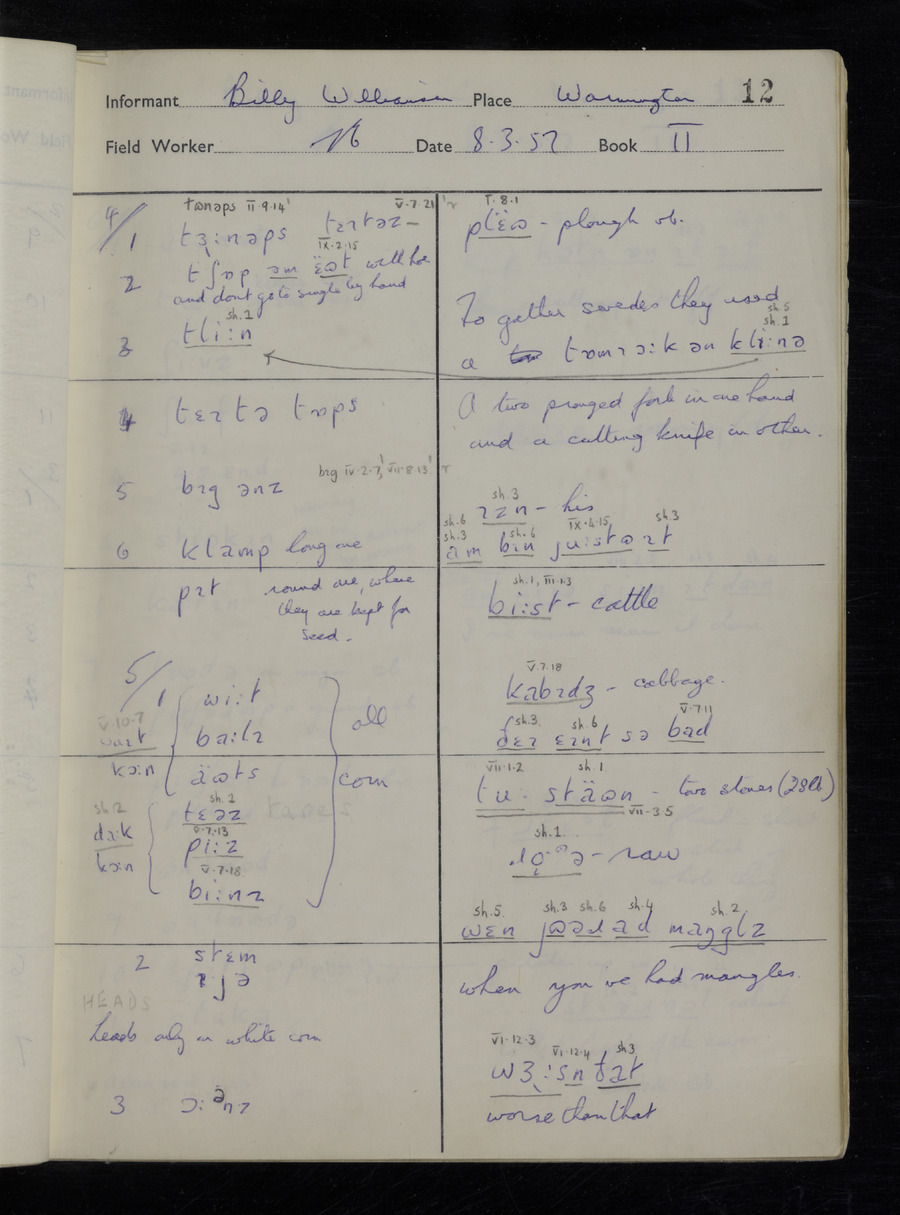 Informant Billy Williamson Place Warmington 12
Field Worker Date 8.3.57 Book II
4/1 tɜ̣:nəps tɛɪtəz –
tɷnəps II.9.14' V.7.21
2 tʃɒp əm ëɷt with hoe
IX.2.15
and dont go to single by hand
sh.1
3 tli:n
4 tɛɪtə tɒps
5 bɪg ənz
bɪg IV.2.7, VII.8.13'
6 klamp long one
pɪt round one, where
they are kept for
seed.
5/1 wi:t
V.10.7
ba:lɪ all
kɔ:n
äɷts corn
sh.2 sh.1
da:k tɛəz
kɔ:n V.7.13
pi:z
V.7.18
bi:nz
2 stɛm
ɪjə
HEADS
heads only on white corn
3 ɔ:ᵊnz
I.8.1
plëɷ – plough ob.
To gather swedes they used
sh.5
sh.1
a kli:nə
A two pronged fork in one hand
and a cutting knife in other.
sh.3
ɪzn – his
sh.6
sh.3 sh.6 IX.4.15 sh.3
am bɪn ju:stə ɪt
sh.1, III.1.3
bi:st – cattle
V.7.18
kabɪdʒ – cabbage.
sh.3. sh.6 V.7.11
ðɛɪ ɛɪnt sə bad
VII.1.2 sh.1
tu: stäɷn – two stones (28lb)
VII.3.5
sh.1.
– raw
sh.5. sh.3 sh.6 sh.4 sh.2
wɛn jɷəd ad maŋglz
when you've had mangles.
VI.12.3
VI.12.4 sh3
wɜ̣:sn ðat
worse than that